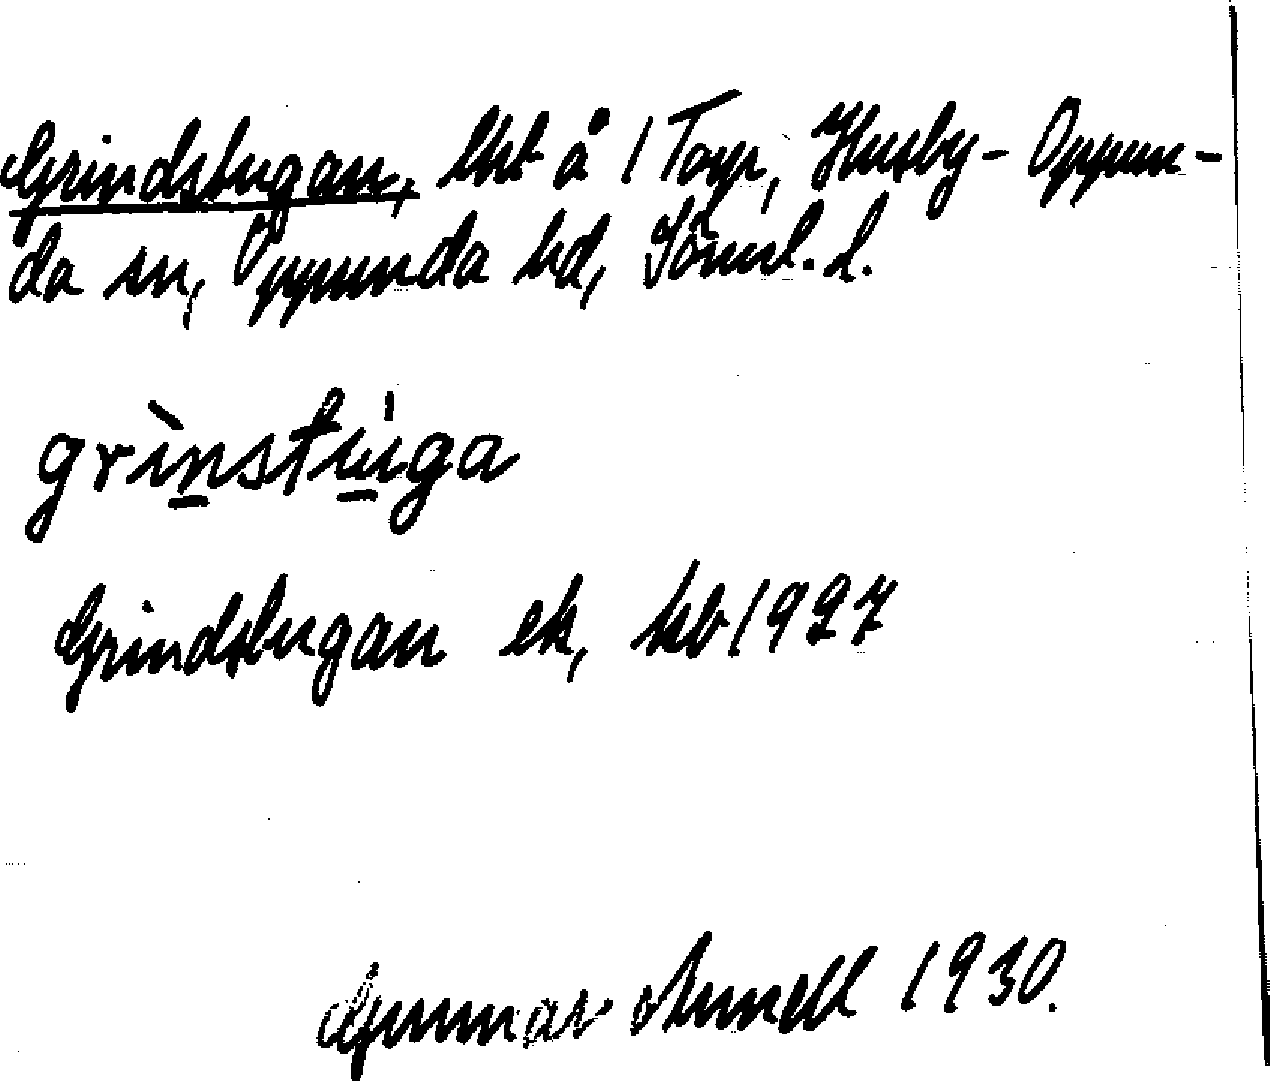 Grindstugan, lht å 1 Torp, Husby-Oppun-
da sn, Oppunda hd, Söderml. l.
grìnstúga
Grindstugan ek, kb 1927
Gunnar Arnell 1930.